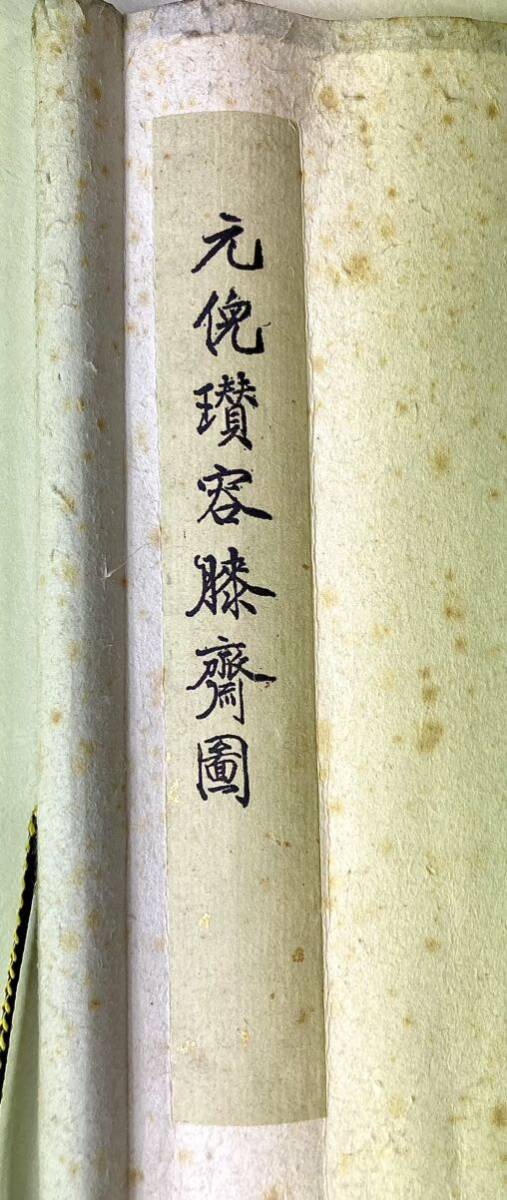 元倪瓚容膝齋圖